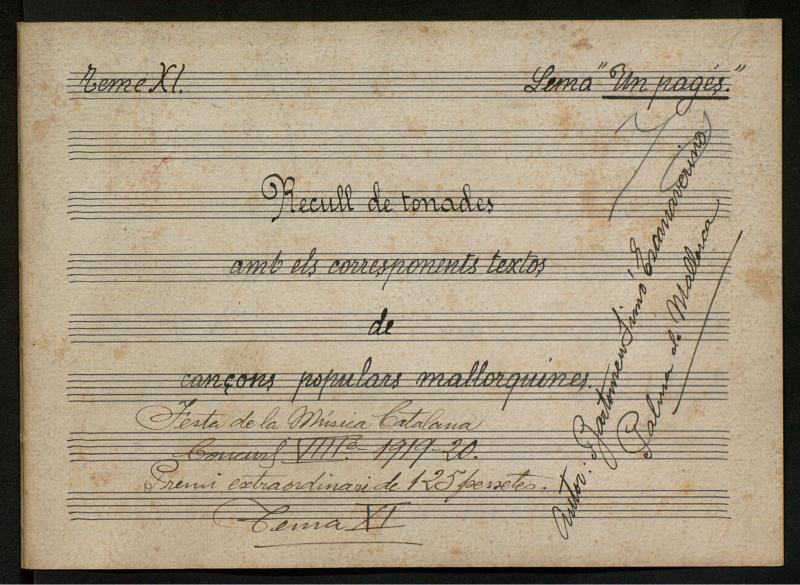 Teme XI.
Lema "Un pagés."
Recull de tonades
amb els corresponents textos
de
cançons populars mallorquines.
Festa de la Música Catalana
Concurs VIIIè - 1919-20.
Premi extraordinari de 125 pessetes.
Tema XI
Autor: Bartomeu Simó
Palma de Mallorca